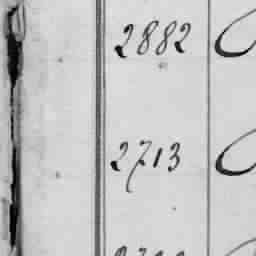 2882
2713